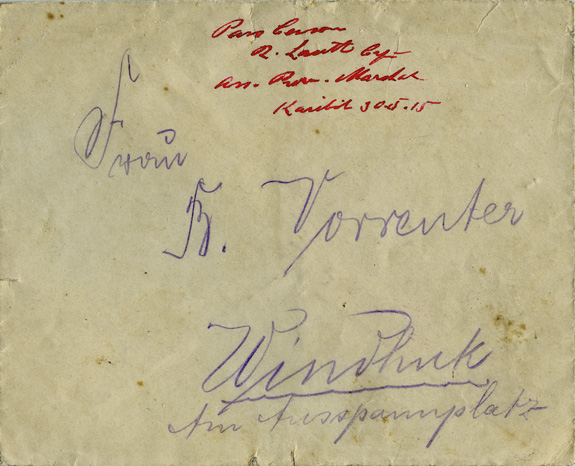 Pass Censor
Ass. Prov. Marshal
Karibib 30.5.15
Frau
B. Vorrenter
Windhuk
Am Ausspannplatz